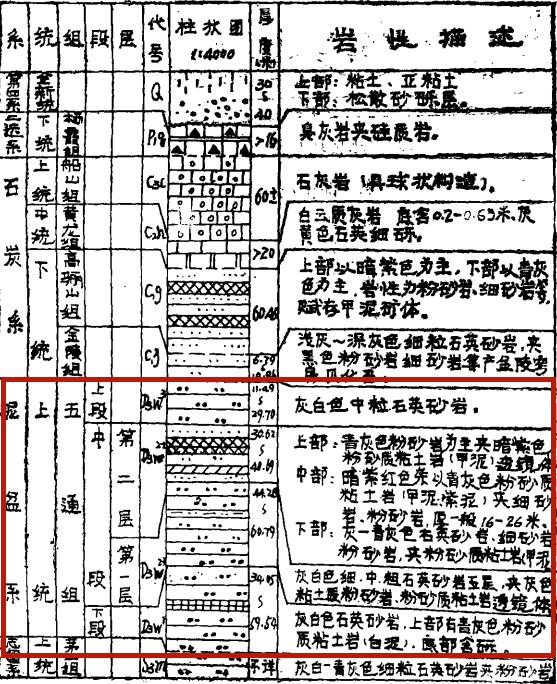 系 统 组 段 层 代号 柱状图 1:4000 厚度(米) 岩性描述
第四系 全新统 Q 30 S 40 上部：粘土、亚粘土
下部：松散砂砾层。
二迭系 下统 栖霞组 P₁q >16 臭灰岩夹硅质岩。
石炭系 上统 船山组 C₃c 60± 石灰岩（具球状构造）。
中统 黄龙组 C₂h >20 白云质灰岩 底含0.2-0.65米灰
黄色石英细砾。
下统 高骊山组 C₁g 60.48 上部以暗紫色为主，下部以青灰
色为主，岩性为粉砂岩、细砂岩等
赋存甲泥矿体。
金陵组 C₁j 6.79 浅灰～深灰色细粒石英砂岩，夹
黑色粉砂岩细砂岩等产金陵
泥盆系 上统 五通组 上段 D₃w³ 11.49 S 29.70 灰白色中粒石英砂岩。
中段 第二层 D₃w²⁻² 30.62 S 48.19 上部：青灰色粉砂岩为主夹暗紫色
粉砂质粘土岩（甲泥）透镜体
44.28 S 60.79 中部：暗紫红色条以青灰色粉砂质
粘土岩（甲泥、紫泥）夹细砂
岩、粉砂岩，厚一般16-26米。
下部：灰—青灰色石英砂岩、细砂岩
粉砂岩，夹粉砂质粘土岩甲泥
第一层 D₃w²⁻¹ 34.05 S 59.54 灰白色细、中、粗石英砂岩互层，夹灰色
粘土质粉砂岩、粉砂质粘土岩透镜体
下段 D₃w¹ 灰白色石英砂岩，上部有青灰色粉砂
质粘土岩（白泥）。底部含砾。
志 系 上统 组 D₃m 不详 灰白—青灰色细粒石英砂岩夹粉砂岩